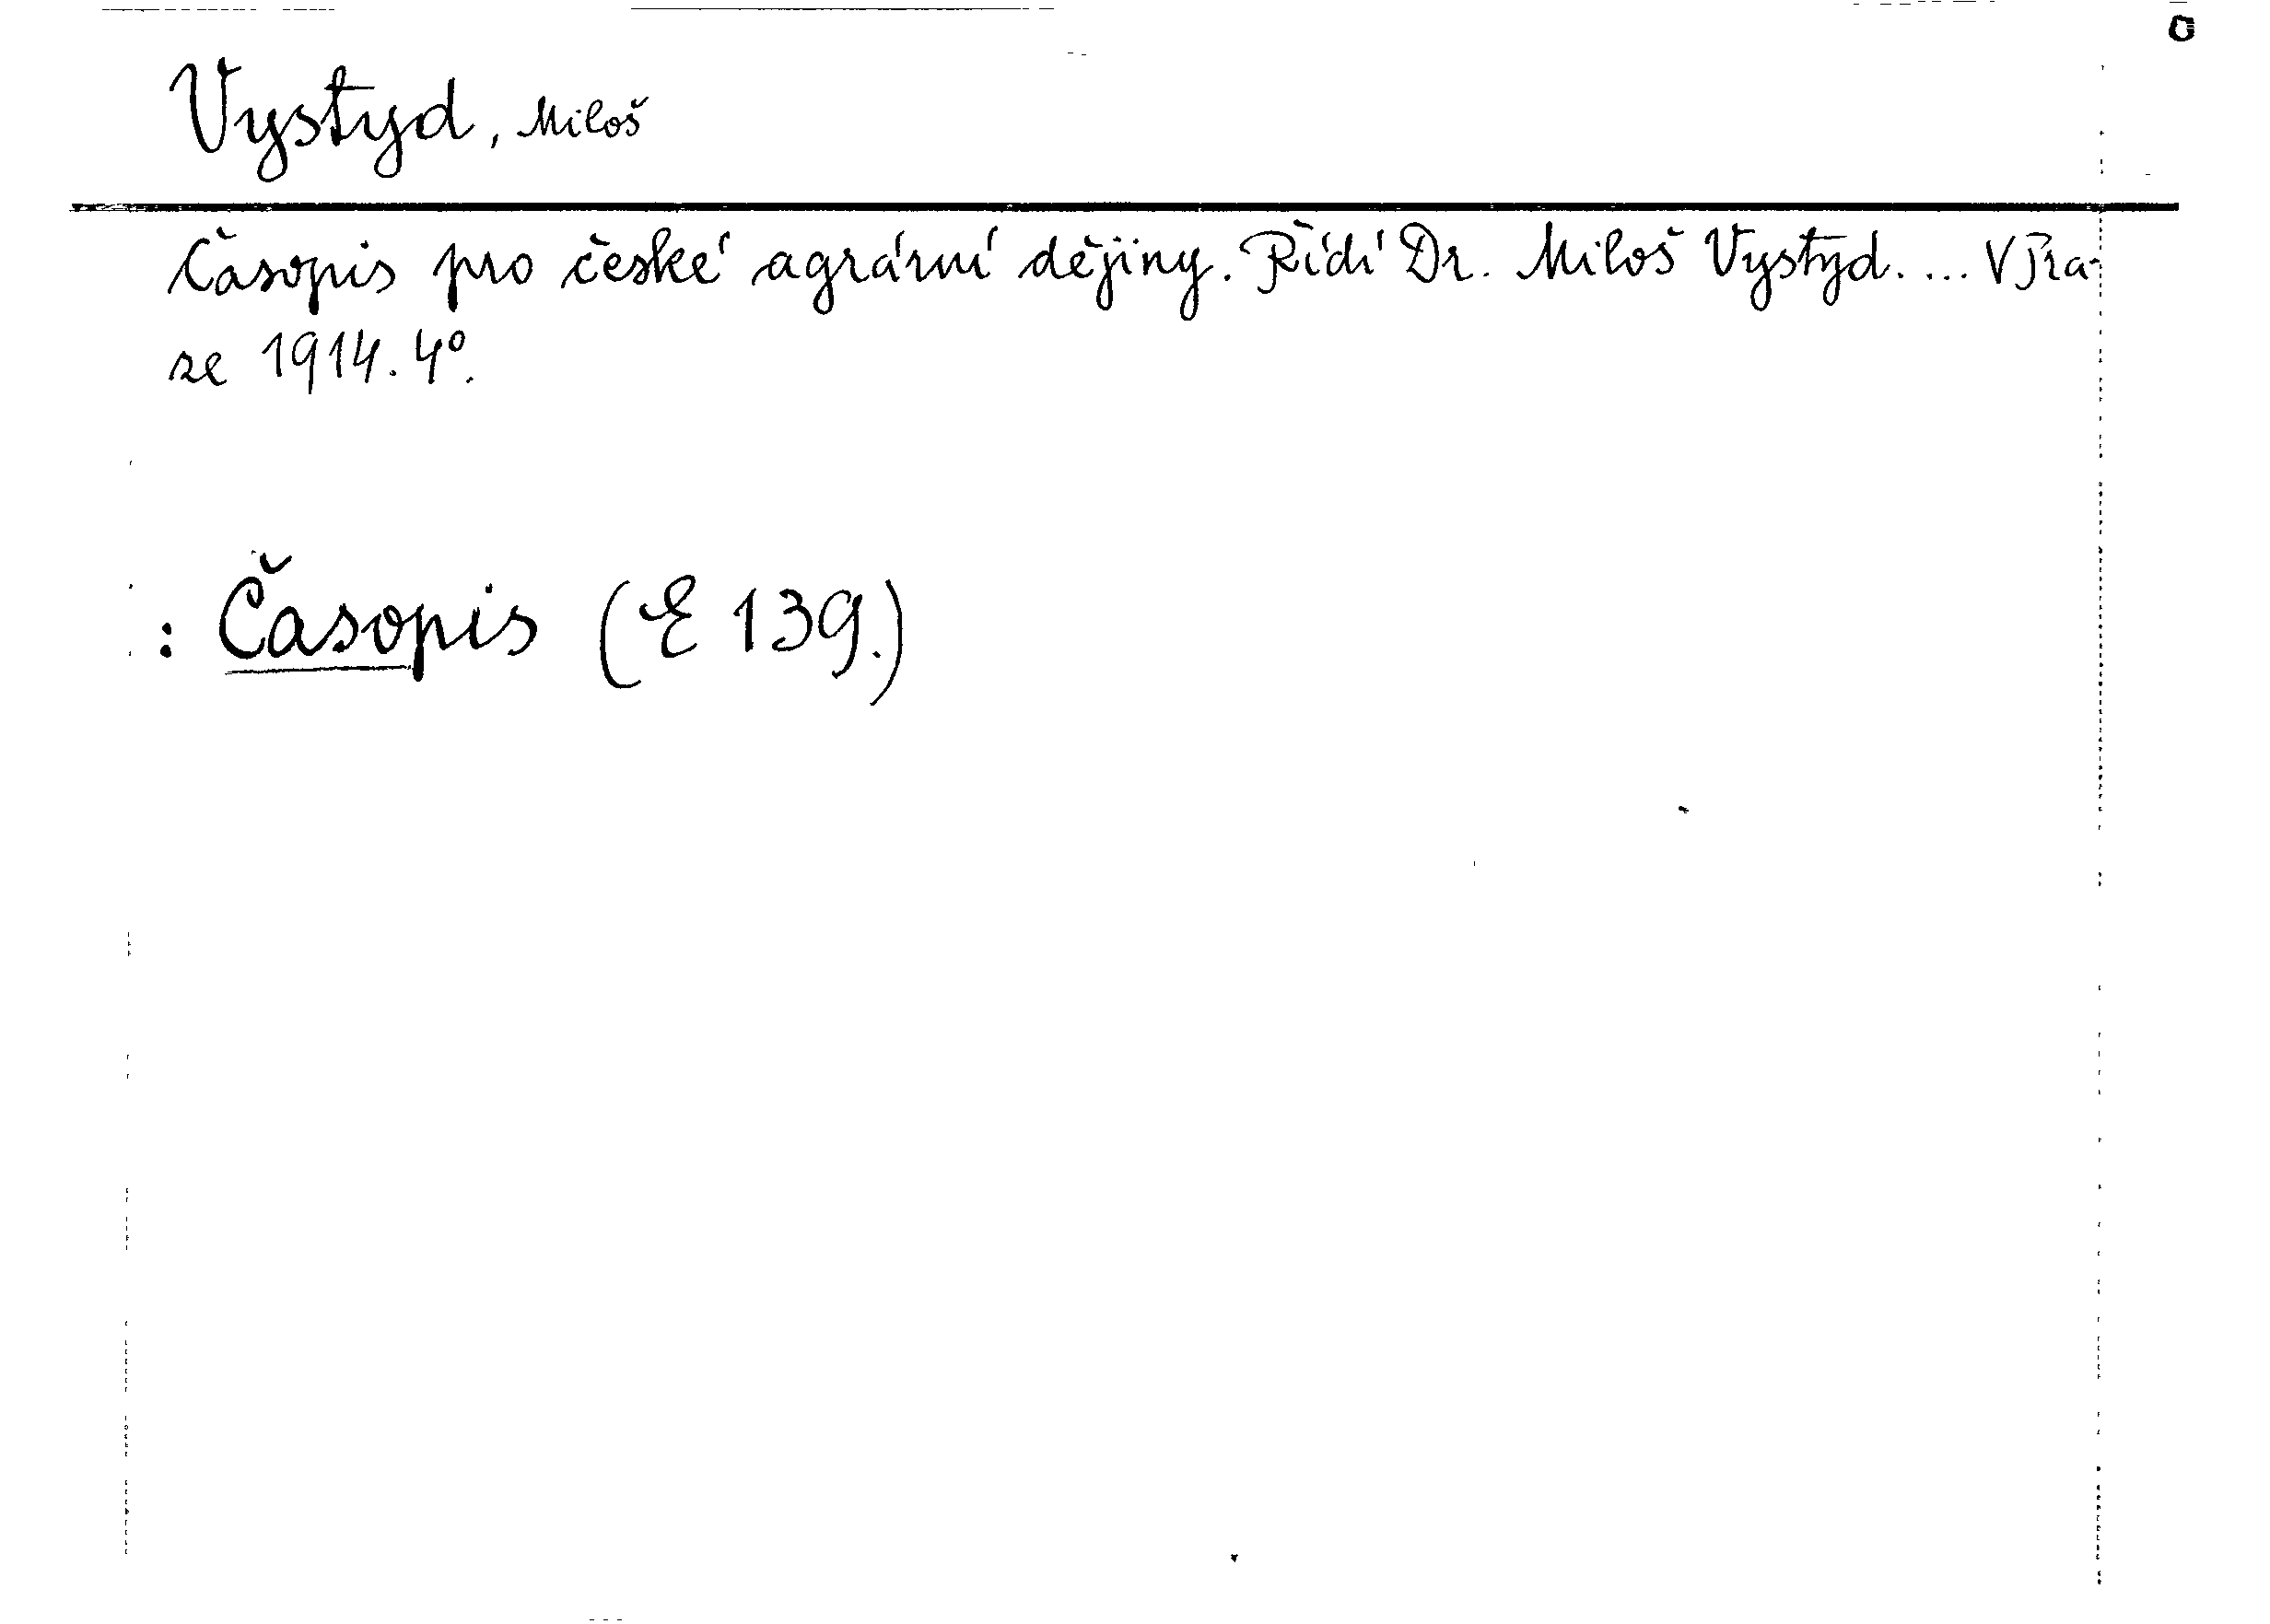 Vystyd, Miloš
Časopis pro české agrární dějiny. Řídí Dr. Miloš Vystyd. ... V Pra-
ze 1914. 4°.
: Časopis (E 139.)